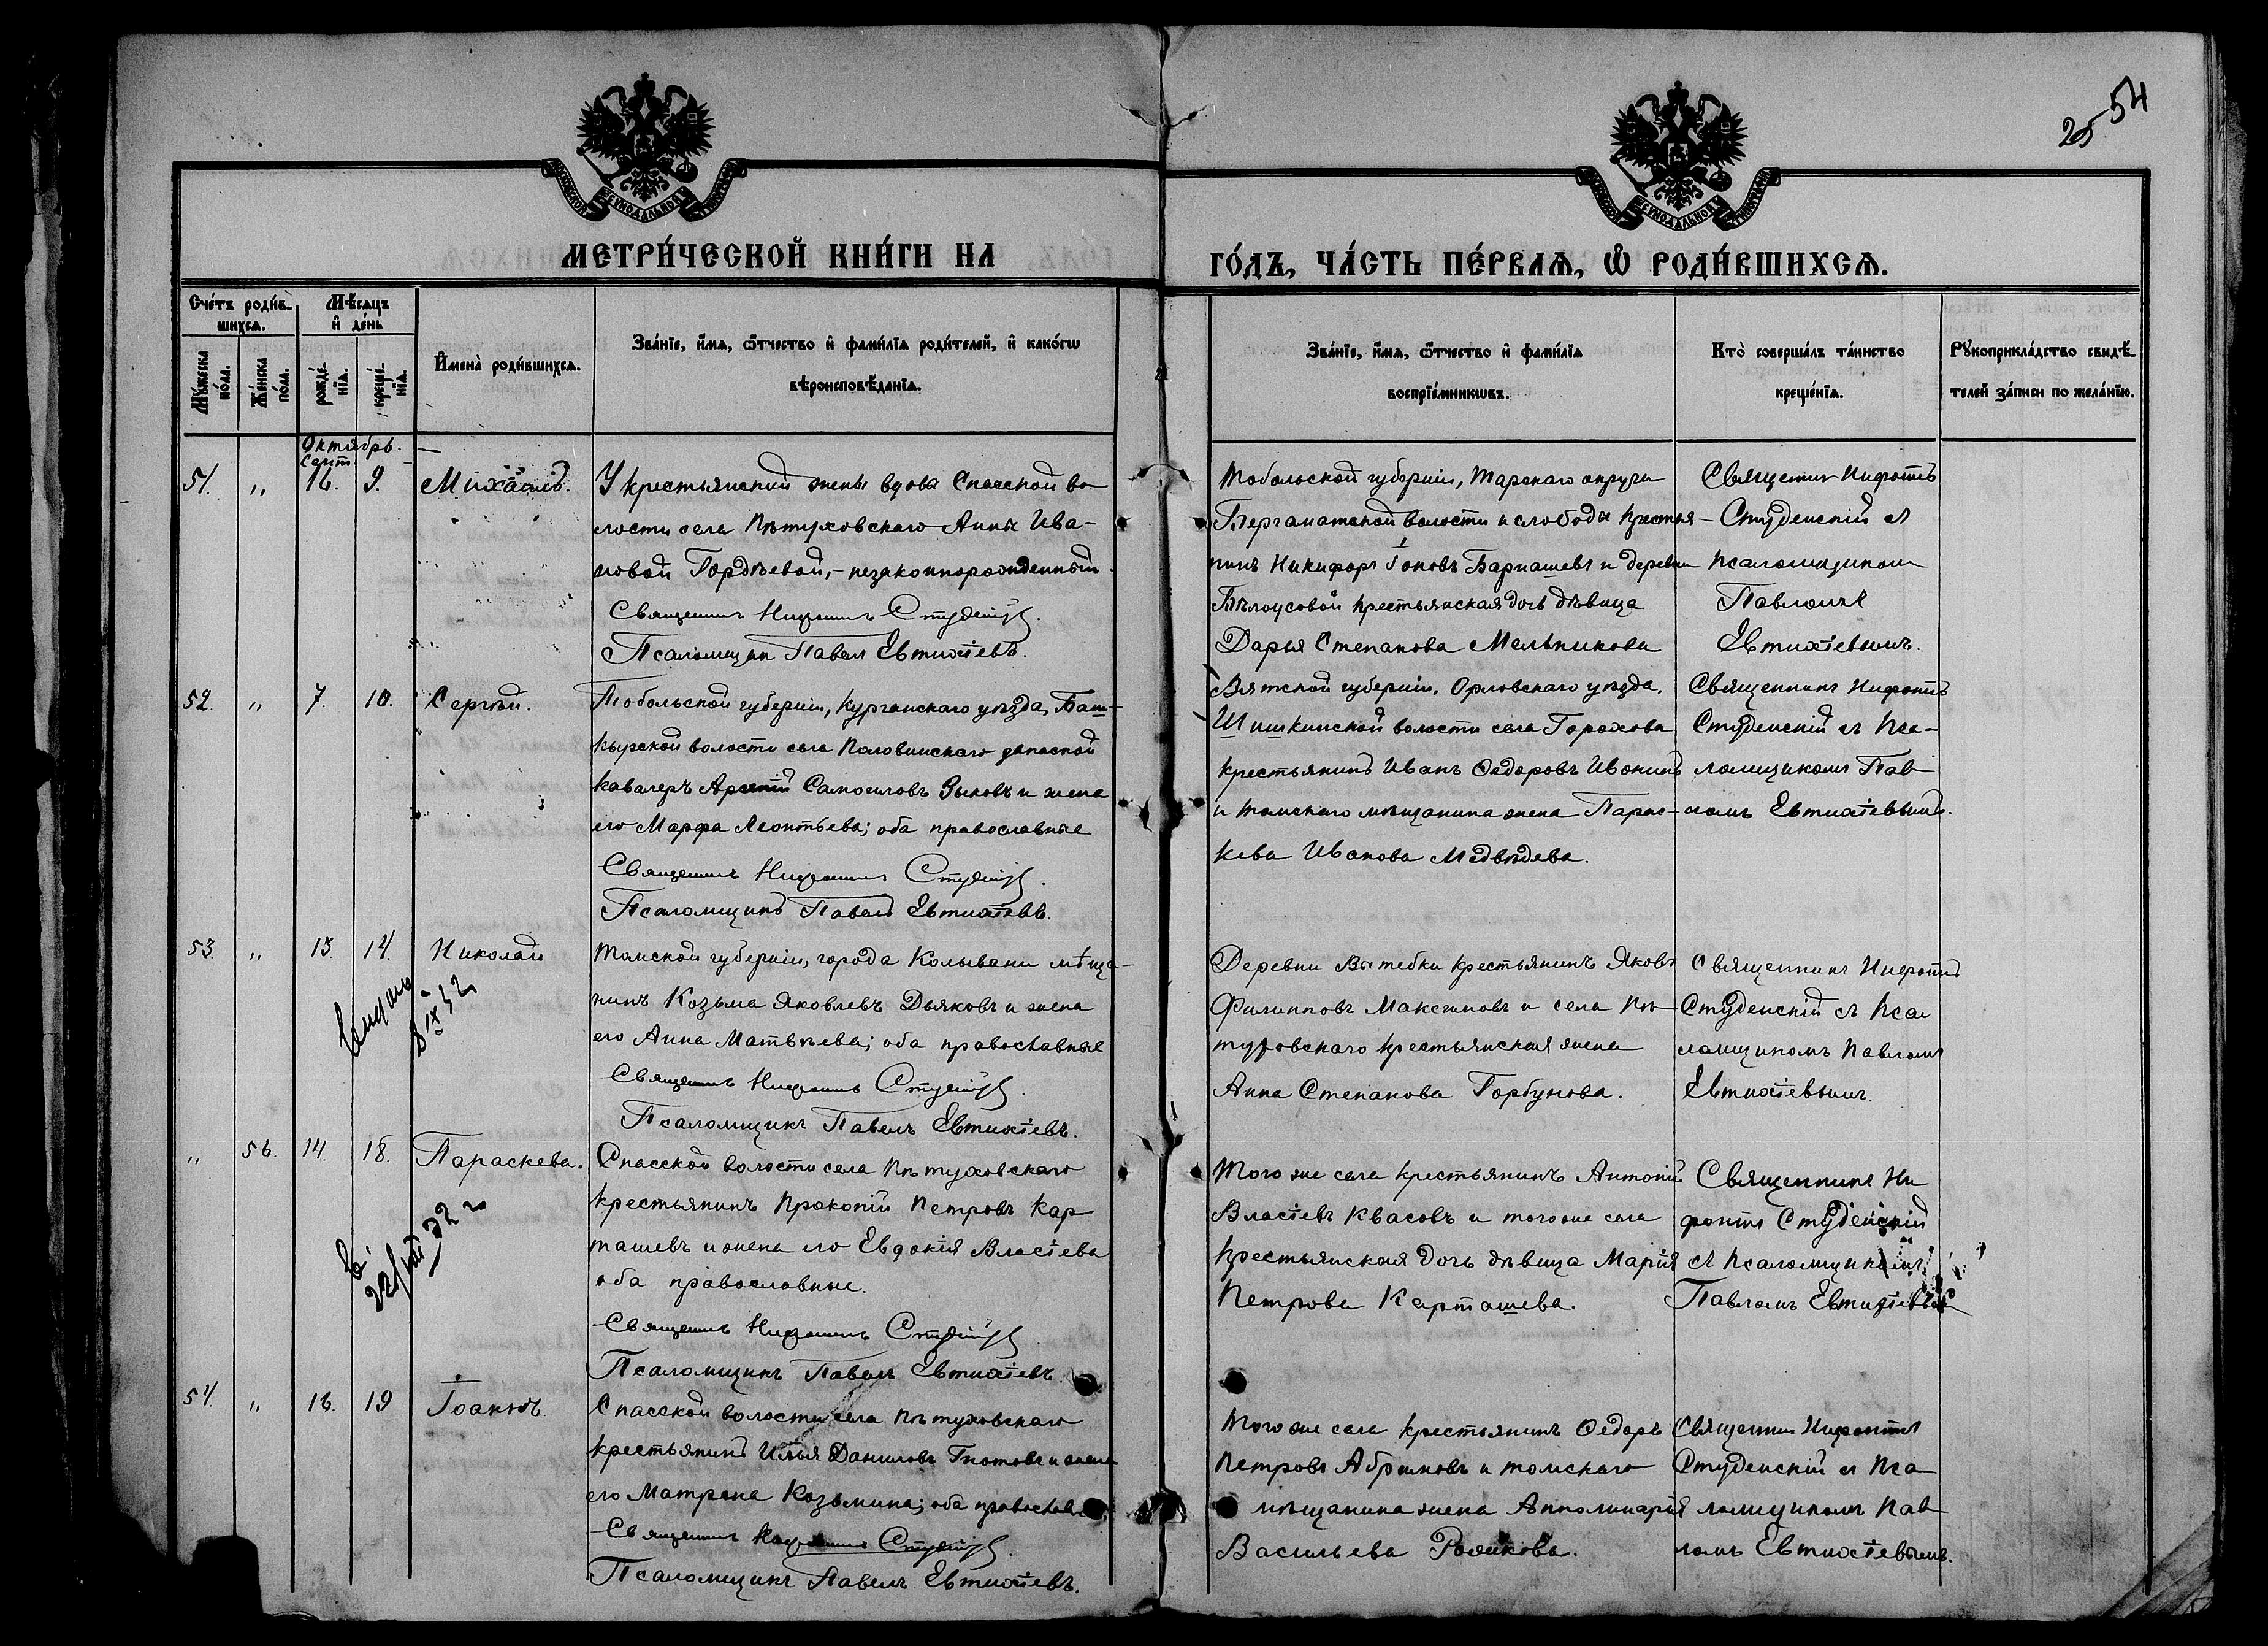 25 54
МЕТРИ́ЧЕСКОЙ КНИ́ГИ НА
ГО́ДЪ, ЧА́СТЬ ПЕ́РВАѦ, Ѡ҆ РОДИ́ВШИХСѦ.
Сче́тъ роди́в-
шихсѧ.
Мѣ́сѧцъ
и҆ де́нь
Мꙋ́жеска
по́ла.
Же́нска
по́ла.
рожде́-
нїѧ.
креще́-
нїѧ.
И҆мена̀ роди́вшихсѧ.
Зва́нїе, и҆́мѧ, ѻ҆́тчество и҆ фами́лїѧ роди́телей, и҆ како́гѡ
вѣроисповѣ́данїѧ.
Зва́нїе, и҆́мѧ, ѻ҆́тчество и҆ фами́лїѧ
воспрїе́мникѡвъ.
Кто̀ соверша́лъ та́инство
креще́нїѧ.
Рꙋкоприкла́дство свидѣ́-
телей за́писи по жела́нїю.
Октябрь.
Сент.
51. " 16. 9. Михаилъ.
У крестьянской жены вдова Спасской во
лости села Пѣтуховскаго Анны Ива-
новой Гордѣевой,- незаконнорожденный.
Священникъ Нифонтъ Студенскій.
Псаломщикъ Павелъ Евтихіевъ.
Тобольской губерніи, Тарскаго округа
Бергаматской волости и слободы крестья-
нинъ Никифоръ Іоновъ Барнашевъ и деревни
Бѣлоусовой крестьянская дочь дѣвица
Дарья Степанова Мельникова
Священникъ Нифонтъ
Студенскій съ
псаломщикомъ
Павломъ
Евтихіевымъ.
52. " 7. 10. Сергѣй.
Тобольской губерніи, Курганскаго уѣзда, Баш-
кырской волости села Половинскаго запасной
кавалеръ Арсеній Самоиловъ Зыковъ и жена
его Марфа Леонтьева; оба православные
Священникъ Нифонтъ Студенскій.
Псаломщикъ Павелъ Евтихіевъ.
Вятской губерніи, Орловскаго уѣзда,
Шишкинской волости села Горохова
крестьянинъ Иванъ Ѳедоровъ Ивонинъ
и томскаго мѣщанина жена Парас-
кева Иванова Медвѣдева.
Священникъ Нифонтъ
Студенскій съ Пса-
ломщикомъ Пав
ломъ Евтихіевымъ.
53. " 13. 14. Николай
Томской губерніи, города Колывани мѣща-
нинъ Козьма Яковлевъ Дьяковъ и жена
его Анна Матвѣева; оба православные
Священникъ Нифонтъ Студенскій.
Псаломщикъ Павелъ Евтихіевъ.
Деревни Вытебки крестьянинъ Яковъ
Филипповъ Максимовъ и села Пѣ
туховскаго крестьянская жена
Анна Степанова Горбунова.
Священникъ Нифонтъ
Студенскій съ Пса
ломщикомъ Павломъ
Евтихіевымъ.
" 56. 14. 18. Параскева.
Спасской волости села Пѣтуховскаго
крестьянинъ Прокопій Петровъ Кар
ташевъ и жена его Евдокія Власіева
оба православные.
Священникъ Нифонтъ Студенскій
Псаломщикъ Павелъ Евтихіевъ.
Того же села крестьянинъ Антоній
Власіевъ Квасовъ и того же села
крестьянская дочь дѣвица Марія
Петрова Карташева.
Священникъ Ни
фонтъ Студенскій
съ псаломщикомъ
Павломъ Евтихіевымъ
54. " 16. 19 Іоаннъ.
Спасской волости села Пѣтуховскаго
крестьянинъ Илья Даниловъ Гнотовъ и жена
его Матрена Козьмина; оба православ
Священникъ Нифонтъ Студенскій.
Псаломщикъ Павелъ Евтихіевъ.
Того же села крестьянинъ Ѳедоръ
Петровъ Абрамовъ и томскаго
мѣщанина жена Апполинарія
Васильева
Священникъ Нифонтъ
Студенскій съ Пса
ломщикомъ Пав
ломъ Евтихіевымъ.